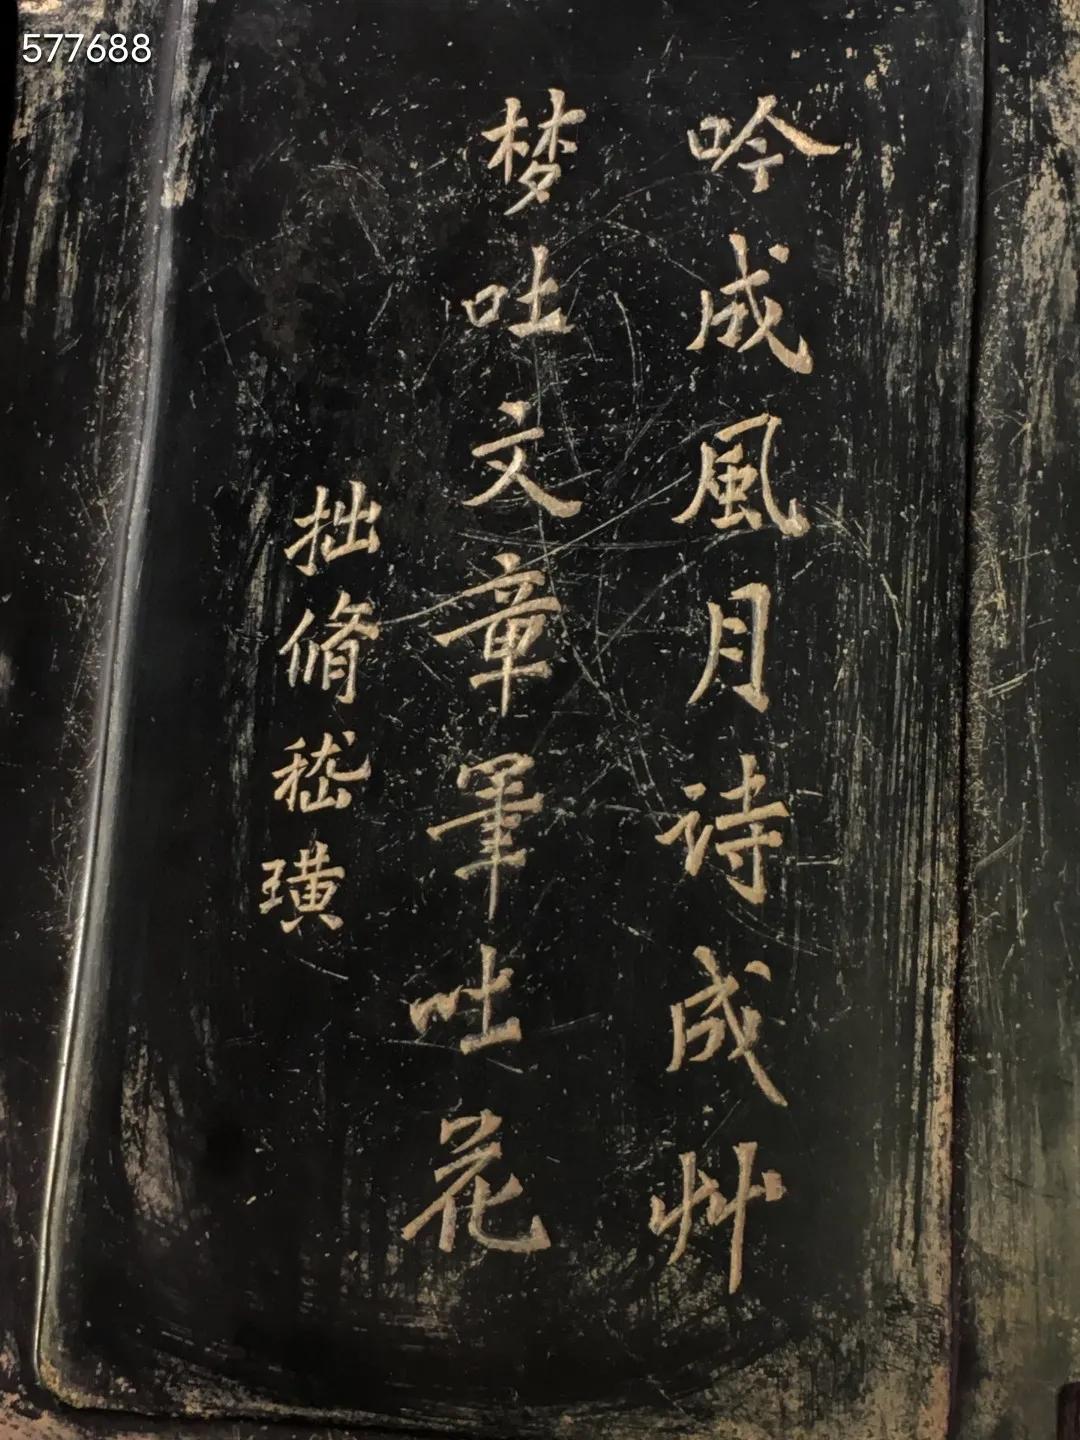 577688
吟成風月诗成艸
梦吐文章筆吐花
拙脩嵇璜